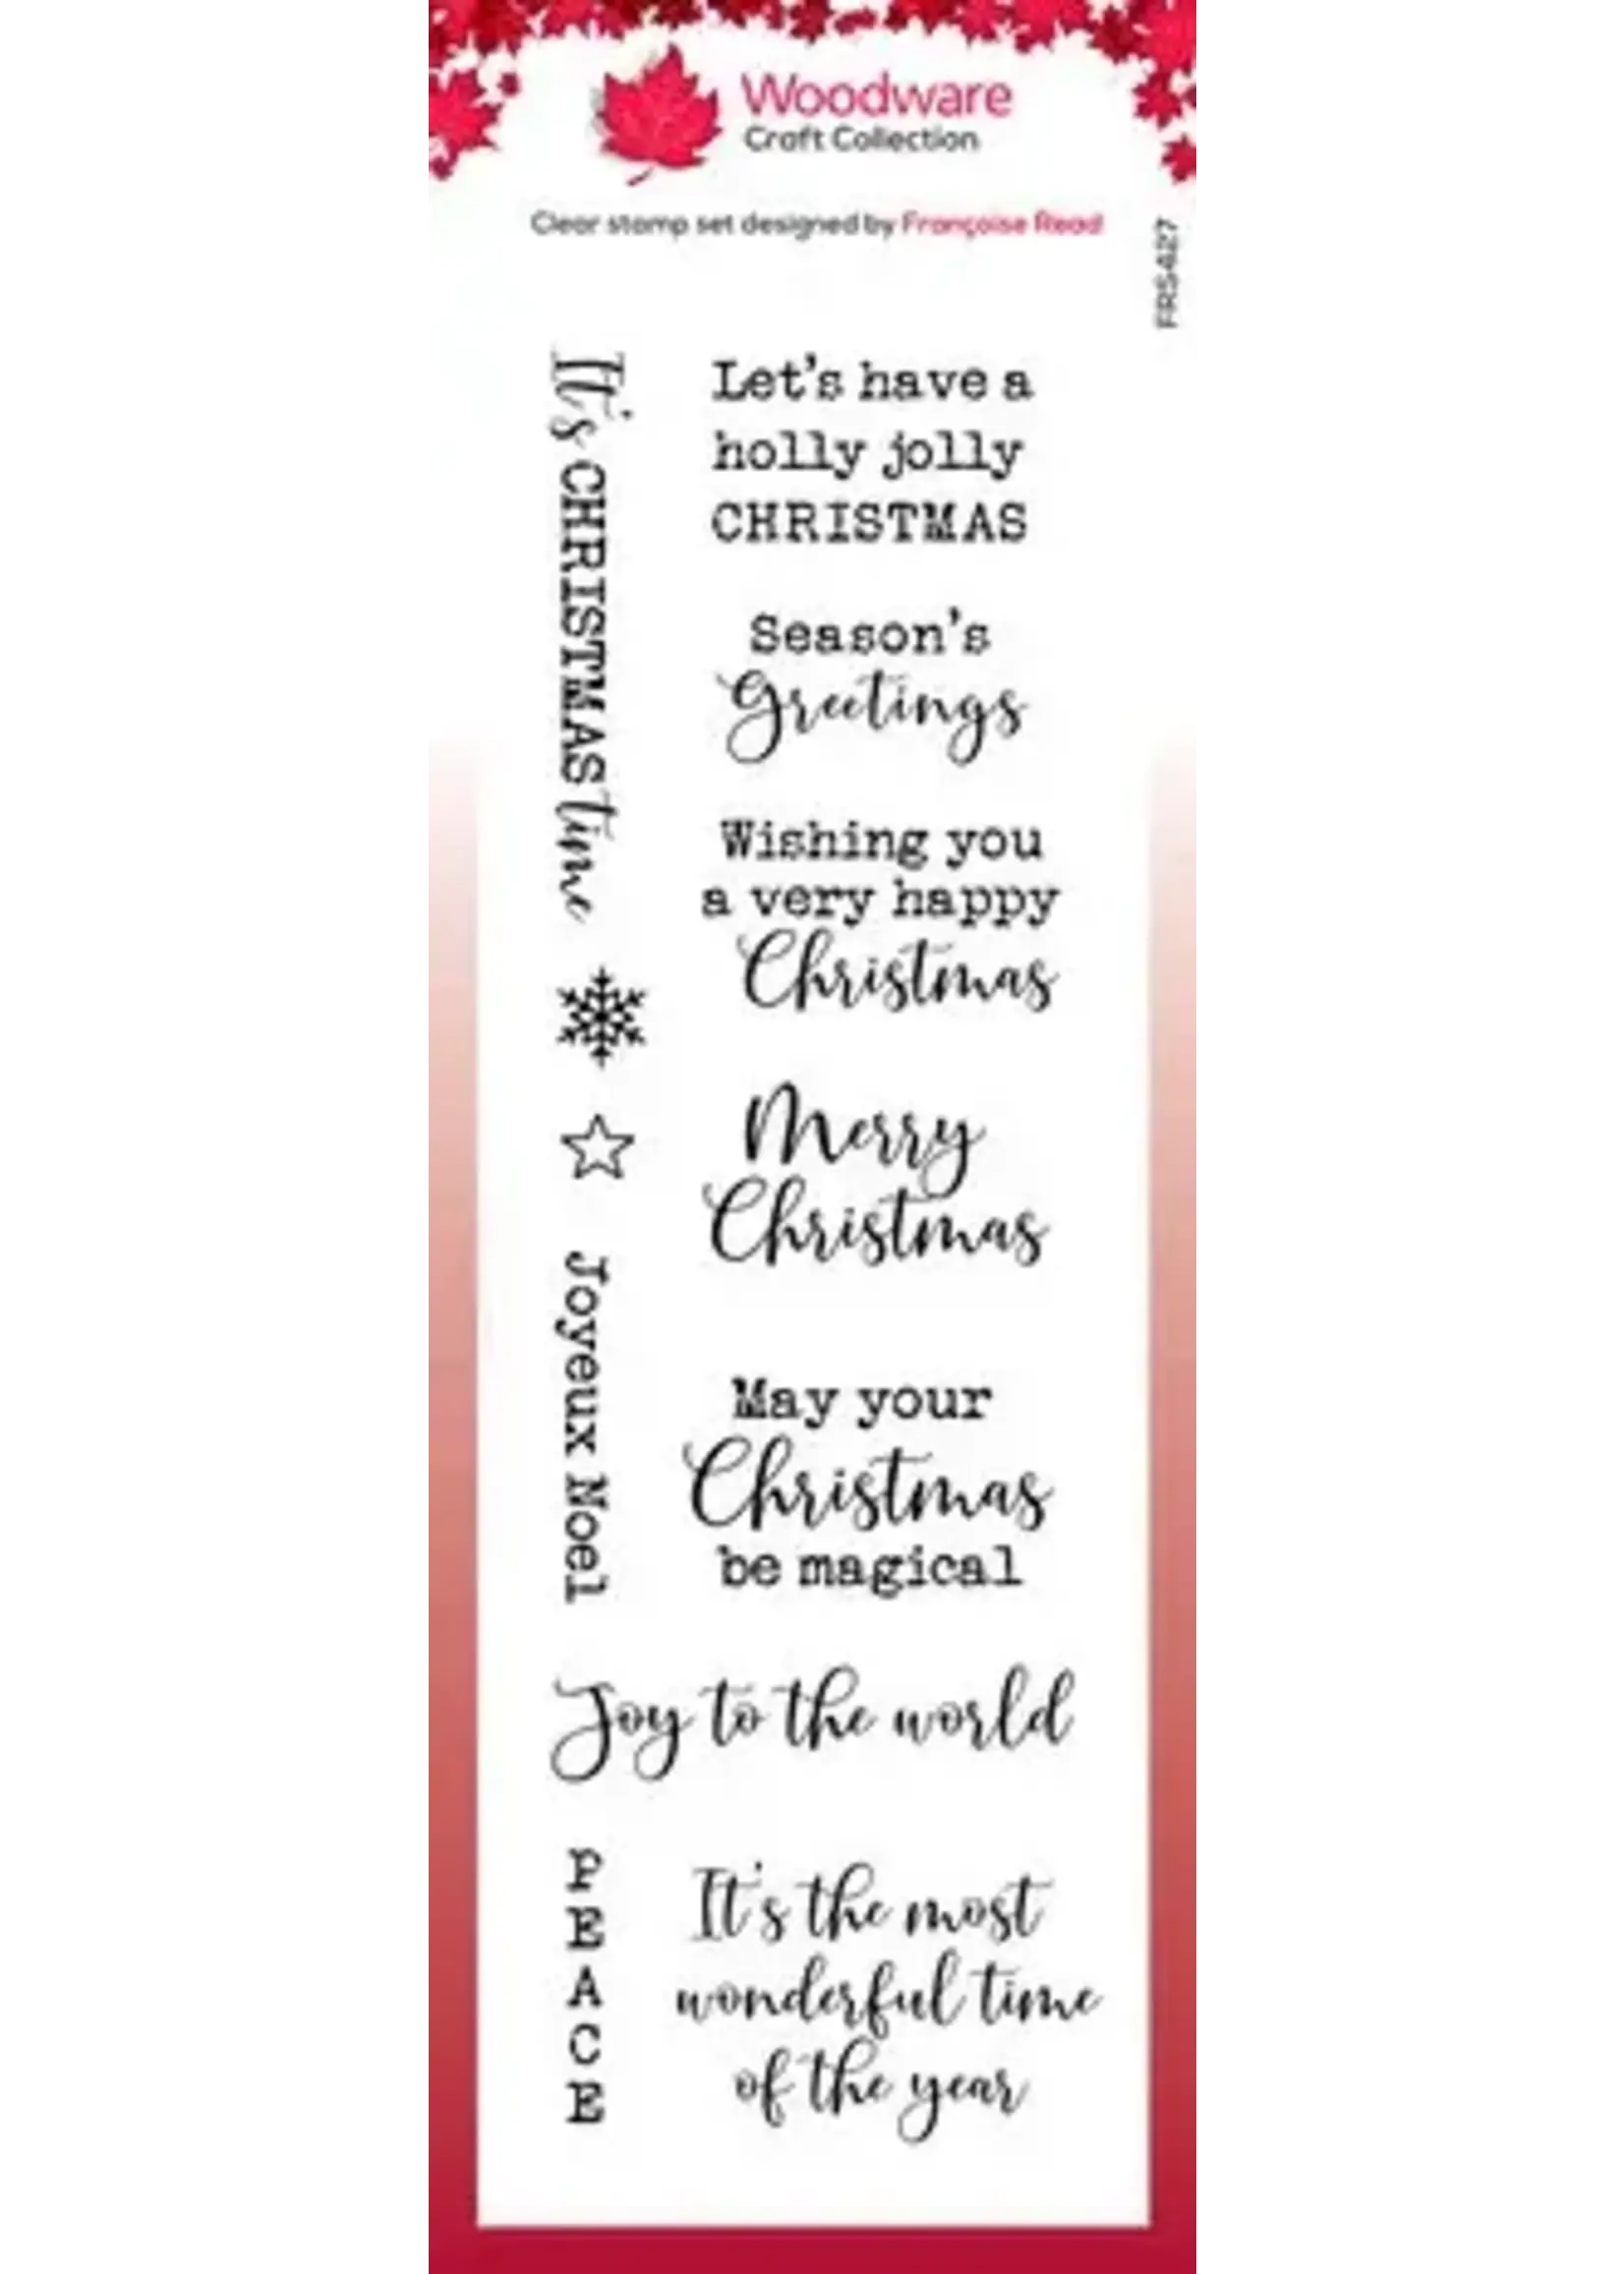 Woodware
Craft Collection
Clear stamp set designed by Françoise Read
FRS427
It's CHRISTMAS time
Let's have a
holly jolly
CHRISTMAS
Season's
Greetings
Wishing you
a very happy
Christmas
Merry
Christmas
Joyeux Noel
May your
Christmas
be magical
Joy to the world
PEACE
It's the most
wonderful time
of the year